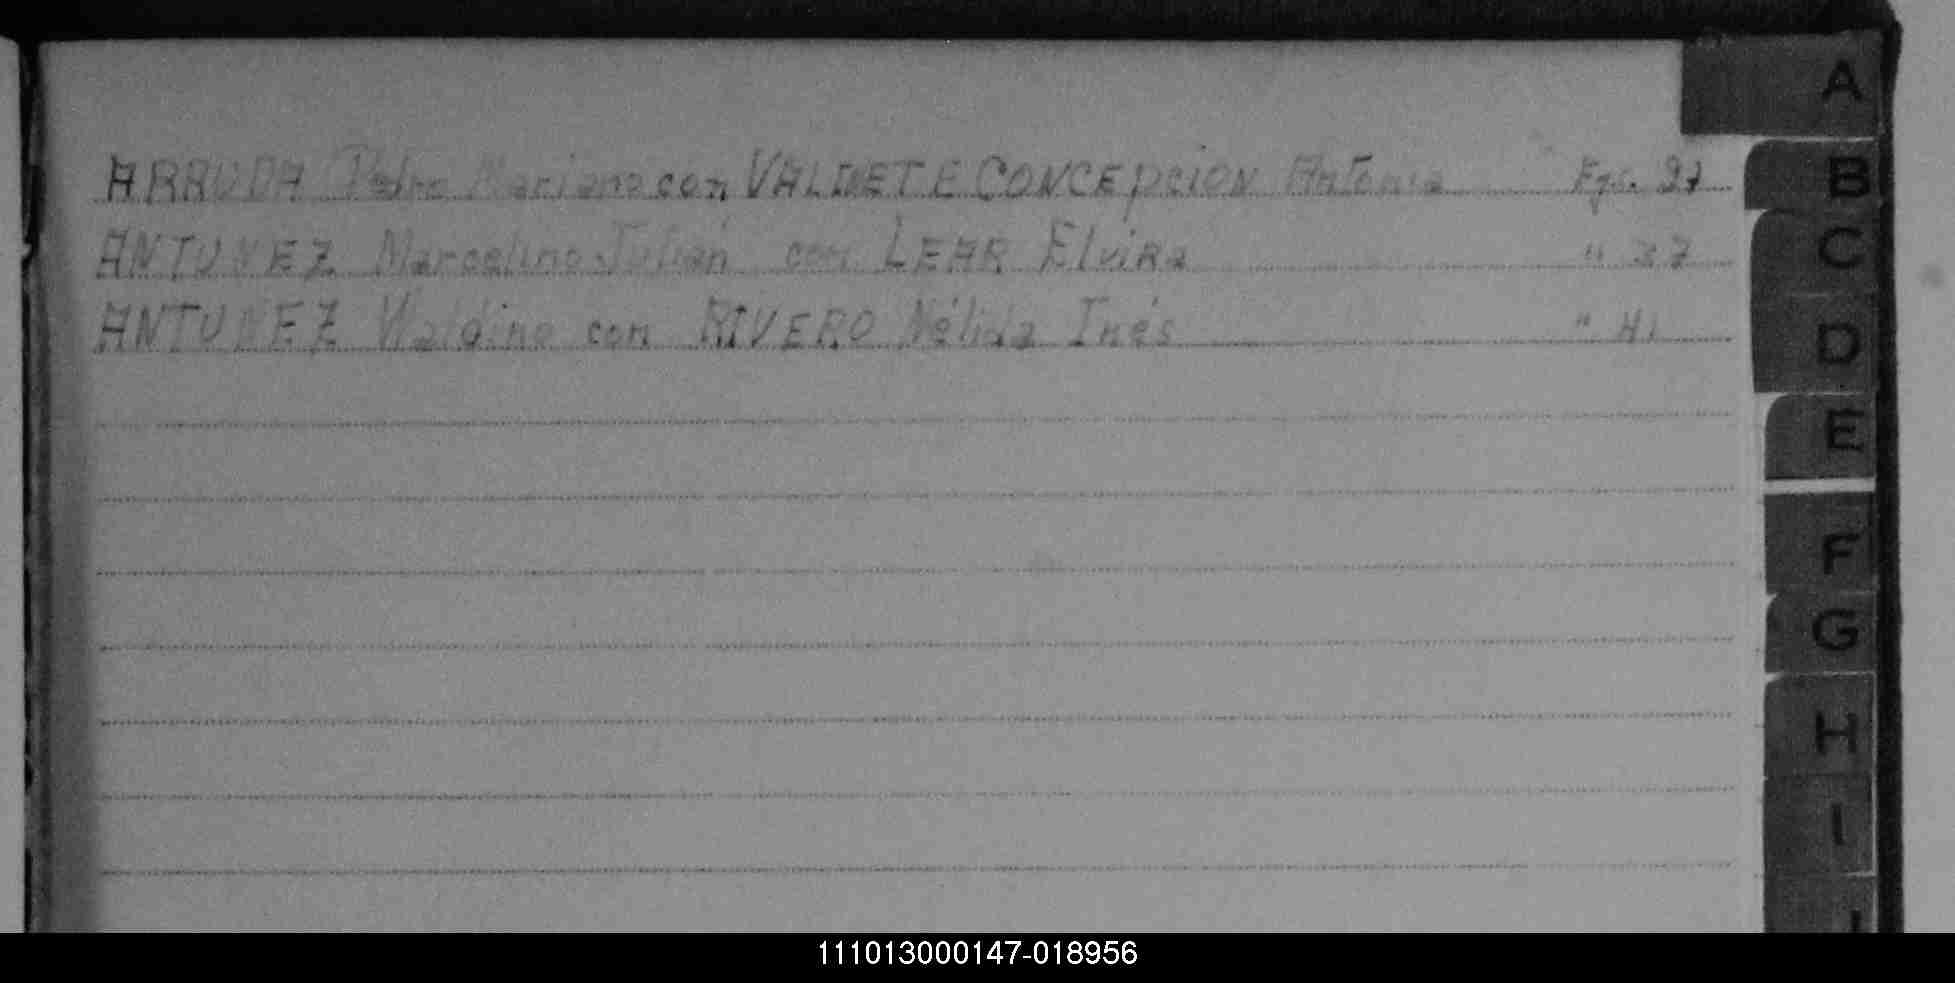 A
ARRUDA Pedro Mariano con VALDETE CONCEPCION Antonia Fjs. 27
B
ANTUNEZ Marcelino Julián con LEAR Elvira " 37
C
ANTUNEZ Waldino con RIVERO Nélida Inés " 41
D
E
F
G
H
I
111013000147-018956